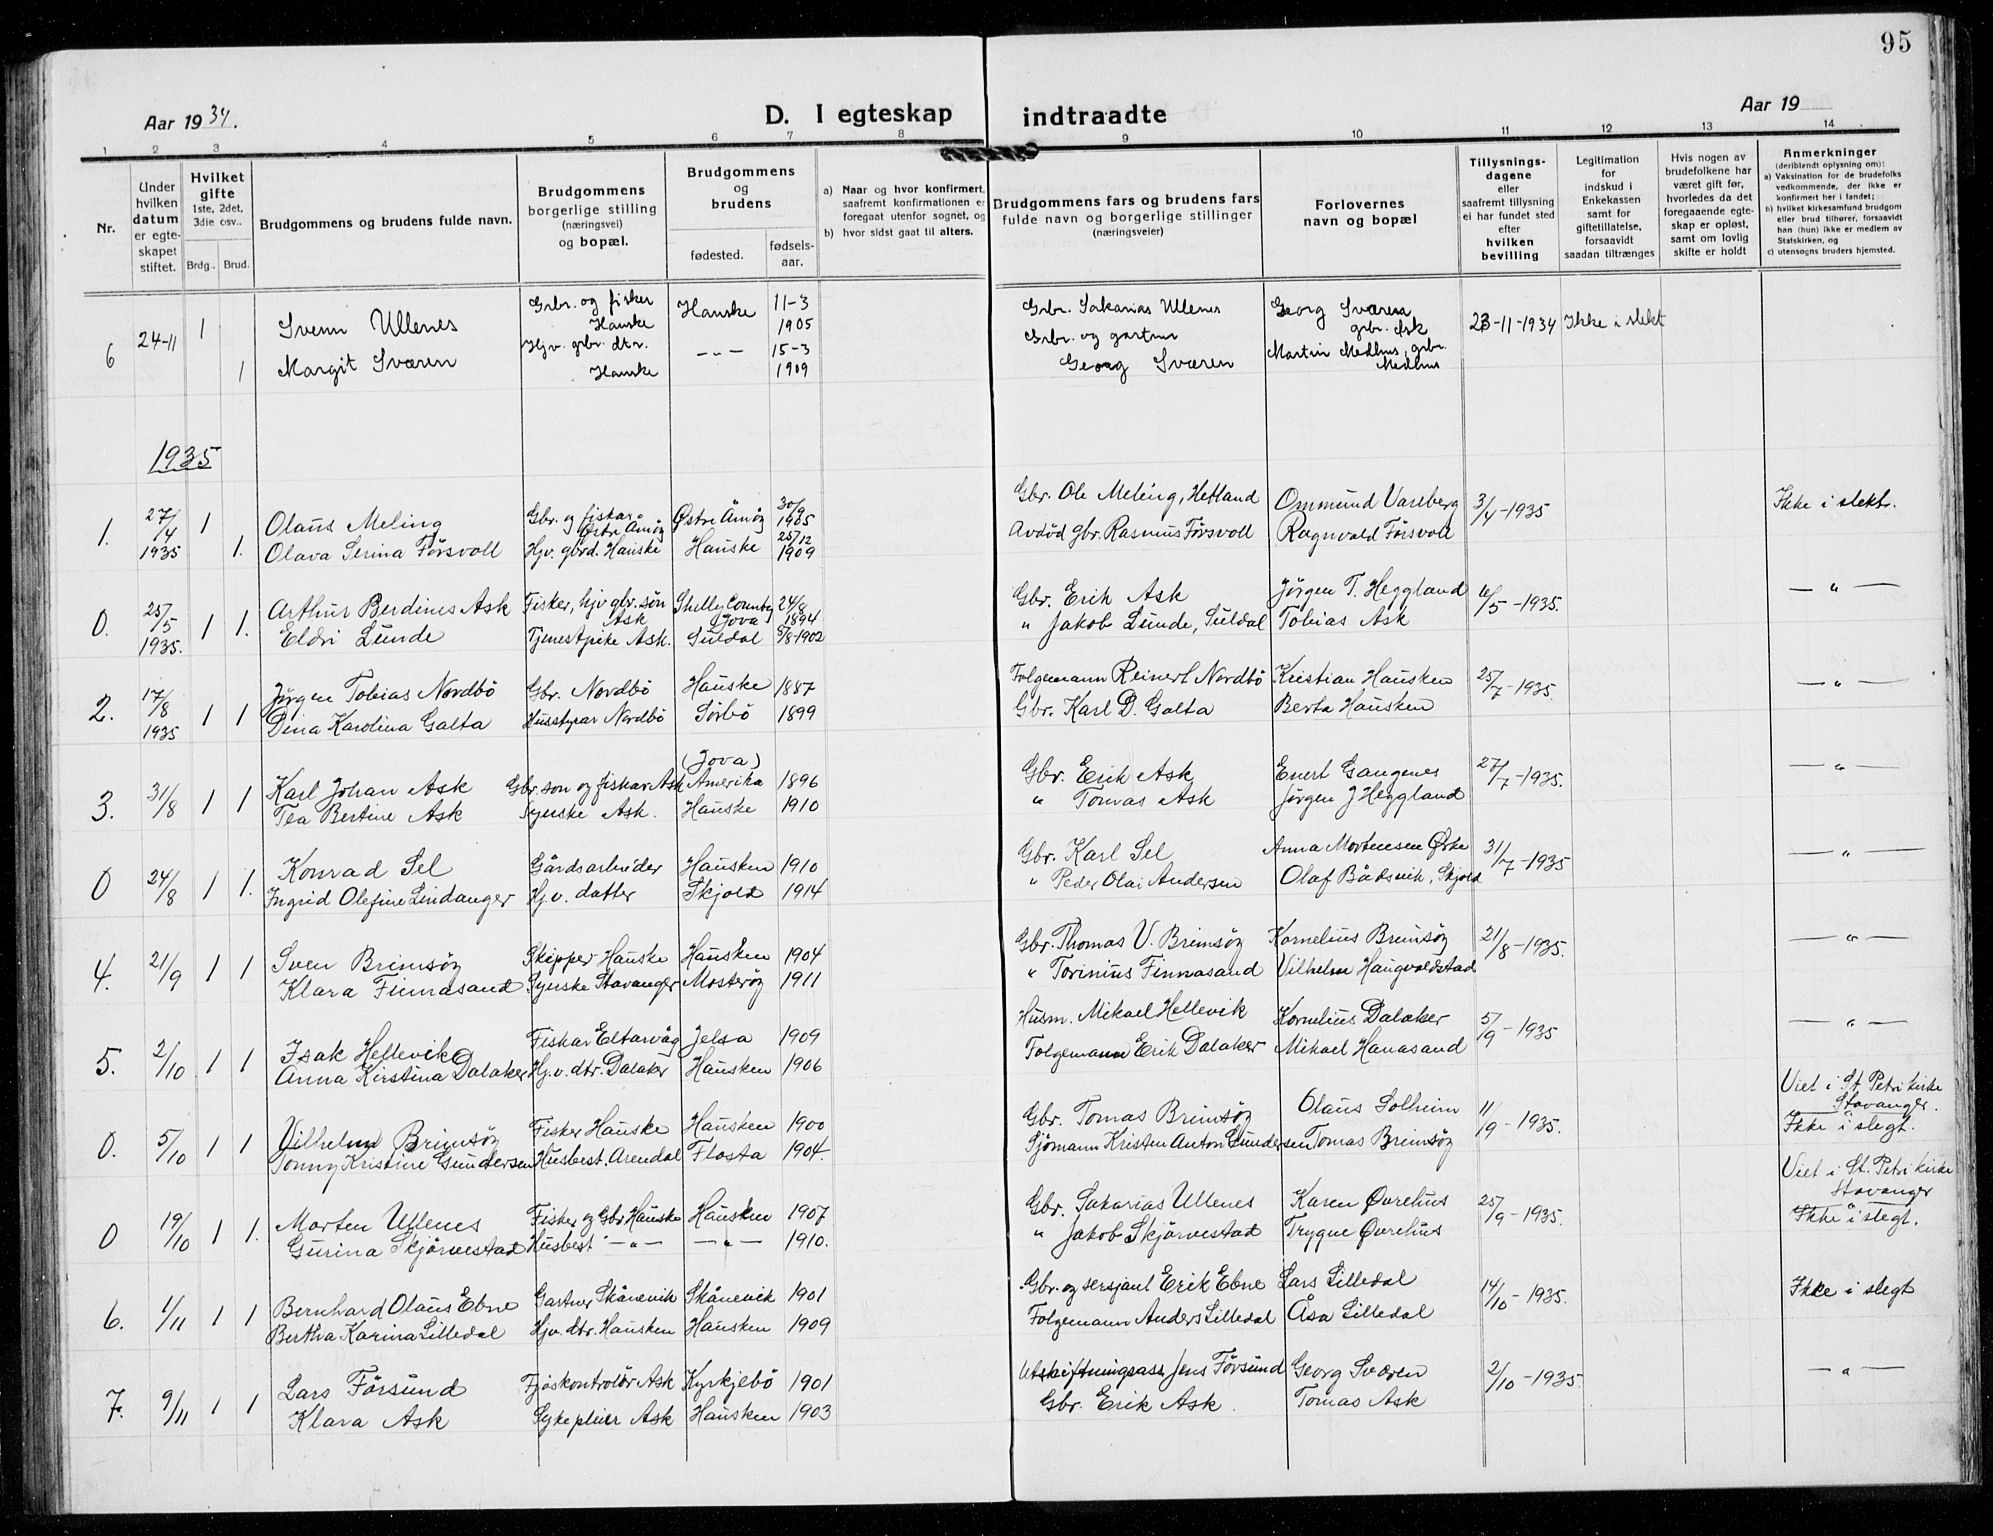 95
Aar 1934.
D. I egteskap indtraadte
Aar 19
1 2 3 4 5 6 7 8 9 10 11 12 13 14
Nr.
Under hvilken datum er egteskapet stiftet.
Hvilket gifte 1ste, 2det, 3die osv..
Brdg.. Brud.
Brudgommens og brudens fulde navn.
Brudgommens borgerlige stilling (næringsvei) og bopæl.
Brudgommens og brudens
fødested.
fødsels-aar.
a) Naar og hvor konfirmert, saafremt konfirmationen er foregaat utenfor sognet, og
b) hvor sidst gaat til alters.
Brudgommens fars og brudens fars fulde navn og borgerlige stillinger (næringsveier)
Forlovernes navn og bopæl
Tillysnings-dagene eller saafremt tillysning ei har fundet sted efter hvilken bevilling
Legitimation for indskud i Enkekassen samt for giftetillatelse, forsaavidt saadan tiltrænges
Hvis nogen av brudefolkene har været gift før, hvorledes da det foregaaende egteskap er opløst, samt om lovlig skifte er holdt
Anmerkninger
(deriblendt oplysning om):
a) Vaksination for de brudefolks vedkommende, der ikke er konfirmert her i landet;
b) hvilket kirkesamfund brudgom eller brud tilhører, forsaavidt han (hun) ikke er medlem av Statskirken, og
c) utensogns bruders hjemsted.
6 24-11 1 Svenn Ullenes Grbr. og fisker Hauske Hauske 11-3 1905 Grbr. Sakarias Ullenes Georg Sværen grbr. Ask 23-11-1934 Ikke i slekt
1 Margit Sværen Hjv. grbr. dtr. Hauske -"- 15-3 1909 Grbr. og gartner Georg Sværen Martin Medhus, grbr. Medhus
1935
1. 27/4 1935 1 Olaus Meling Gbr. og fiskar Østre Åmøy Østre Åmøy 30/9 1905 Gbr. Ole Meling, Hetland Ommund Vareberg 3/4-1935 Ikke i slekt.
1. Olava Serina Førsvoll Hjv. gbrd. Hauske Hauske 25/12 1909 Avdöd gbr. Rasmus Førsvoll Ragnvald Førsvoll
0. 25/5 1935. 1 1. Arthur Berdines Ask Fisker, hjv gbr. søn Ask Shelly County Jova 24/8 1894 Gbr. Erik Ask Jørgen T. Heggland 6/5-1935. -"-
Eldri Lunde Tjenestpike Ask. Suldal 5/8-1902 " Jakob Lunde, Suldal Tobias Ask
2. 17/8 1935 1 1 Jørgen Tobias Nordbö Gbr. Nordbö Hauske 1887 Folgemann Reinert Nordbö Kristian Hausken 25/7-1935. -"-
Dina Karolina Galta Husstyrar Nordbö Sörbö 1899 Gbr. Karl D. Galta Berta Hausken
3. 31/8 1 1 Karl Johan Ask Gbr. son og fiskar Ask (Jova) Amerika 1896 Gbr. Erik Ask Enert Gangenes 27/7-1935. -"-
Tea Bertine Ask Syerske Ask. Hauske 1910 " Tomas Ask Jørgen J Heggland
0 24/8 1 1. Konrad Sel Gårdsarbeider Hausken 1910 Gbr. Karl Sel Anna Mortensen Øske 31/7-1935 -"-
Ingrid Olefine Lindanger Hj.v. datter Skjold 1914 " Peder Olai Andersen Olaf Bådsvik, Skjold
4. 21/9 1 1 Sven Brimsöy Skipper Hauske Hausken 1904 Gbr. Thomas V. Brimsöy Kornelius Brimsöy 21/8-1935. -"-
Klara Finnasand Syerske Stavanger Mosterøy 1911 " Torinius Finnasand Vilhelm Haugvaldstad
5. 2/10 1 1 Isak Hellevik Fiskar Eltarvåg Jelsa 1909 Husm. Mikael Hellevik Kornelius Dalaker 5/9-1935 -"-
Anna Kirstina Dalaker Hj.v. dtr. Dalaker Hausken 1906 Folgemann Erik Dalaker Mikael Hanasand
0. 5/10 1 1 Vilhelm Brimsöy Fisker Hauske Hausken 1900 Gbr. Tomas Brimsöy Olaus Solheim 11/9-1935. Viet i St. Petri kirke Stavanger.
Tonny Kristine Gundersen Husbest. Arendal Flosta 1904. Sjömann Kristen Anton Gundersen Tomas Brimsöy Ikke i slegt.
0 19/10 1 1. Morten Ullenes Fisker og Gbr. Hauske Hausken 1907 Gbr. Sakarias Ullenes Karen Øvrehus 25/9-1935. Viet i St. Petri kirke Stavanger
Gurina Skjörvestad Husbest -"- -"- 1910. " Jakob Skjörvestad Trygve Øvrehus Ikke i slegt.
6. 1/11 1 1 Bernhard Olaus Ebne Gartner Skånevik Skånevik 1901 Gbr. og sersjant Erik Ebne Lars Lilledal 14/10-1935. Ikke i slegt
Bertha Karina Lilledal Hjv. dtr. Hausken Hausken 1909 Folgemann Anders Lilledal Åsa Lilledal
7. 9/11 1 1 Lars Førsund Fjøskontrolör Ask Kyrkjebö 1901 Utskiftningsass. Jens Førsund Georg Sværen 2/10-1935. -"-
Klara Ask Sykepleier Ask Hausken 1903 Gbr. Erik Ask. Tomas Ask